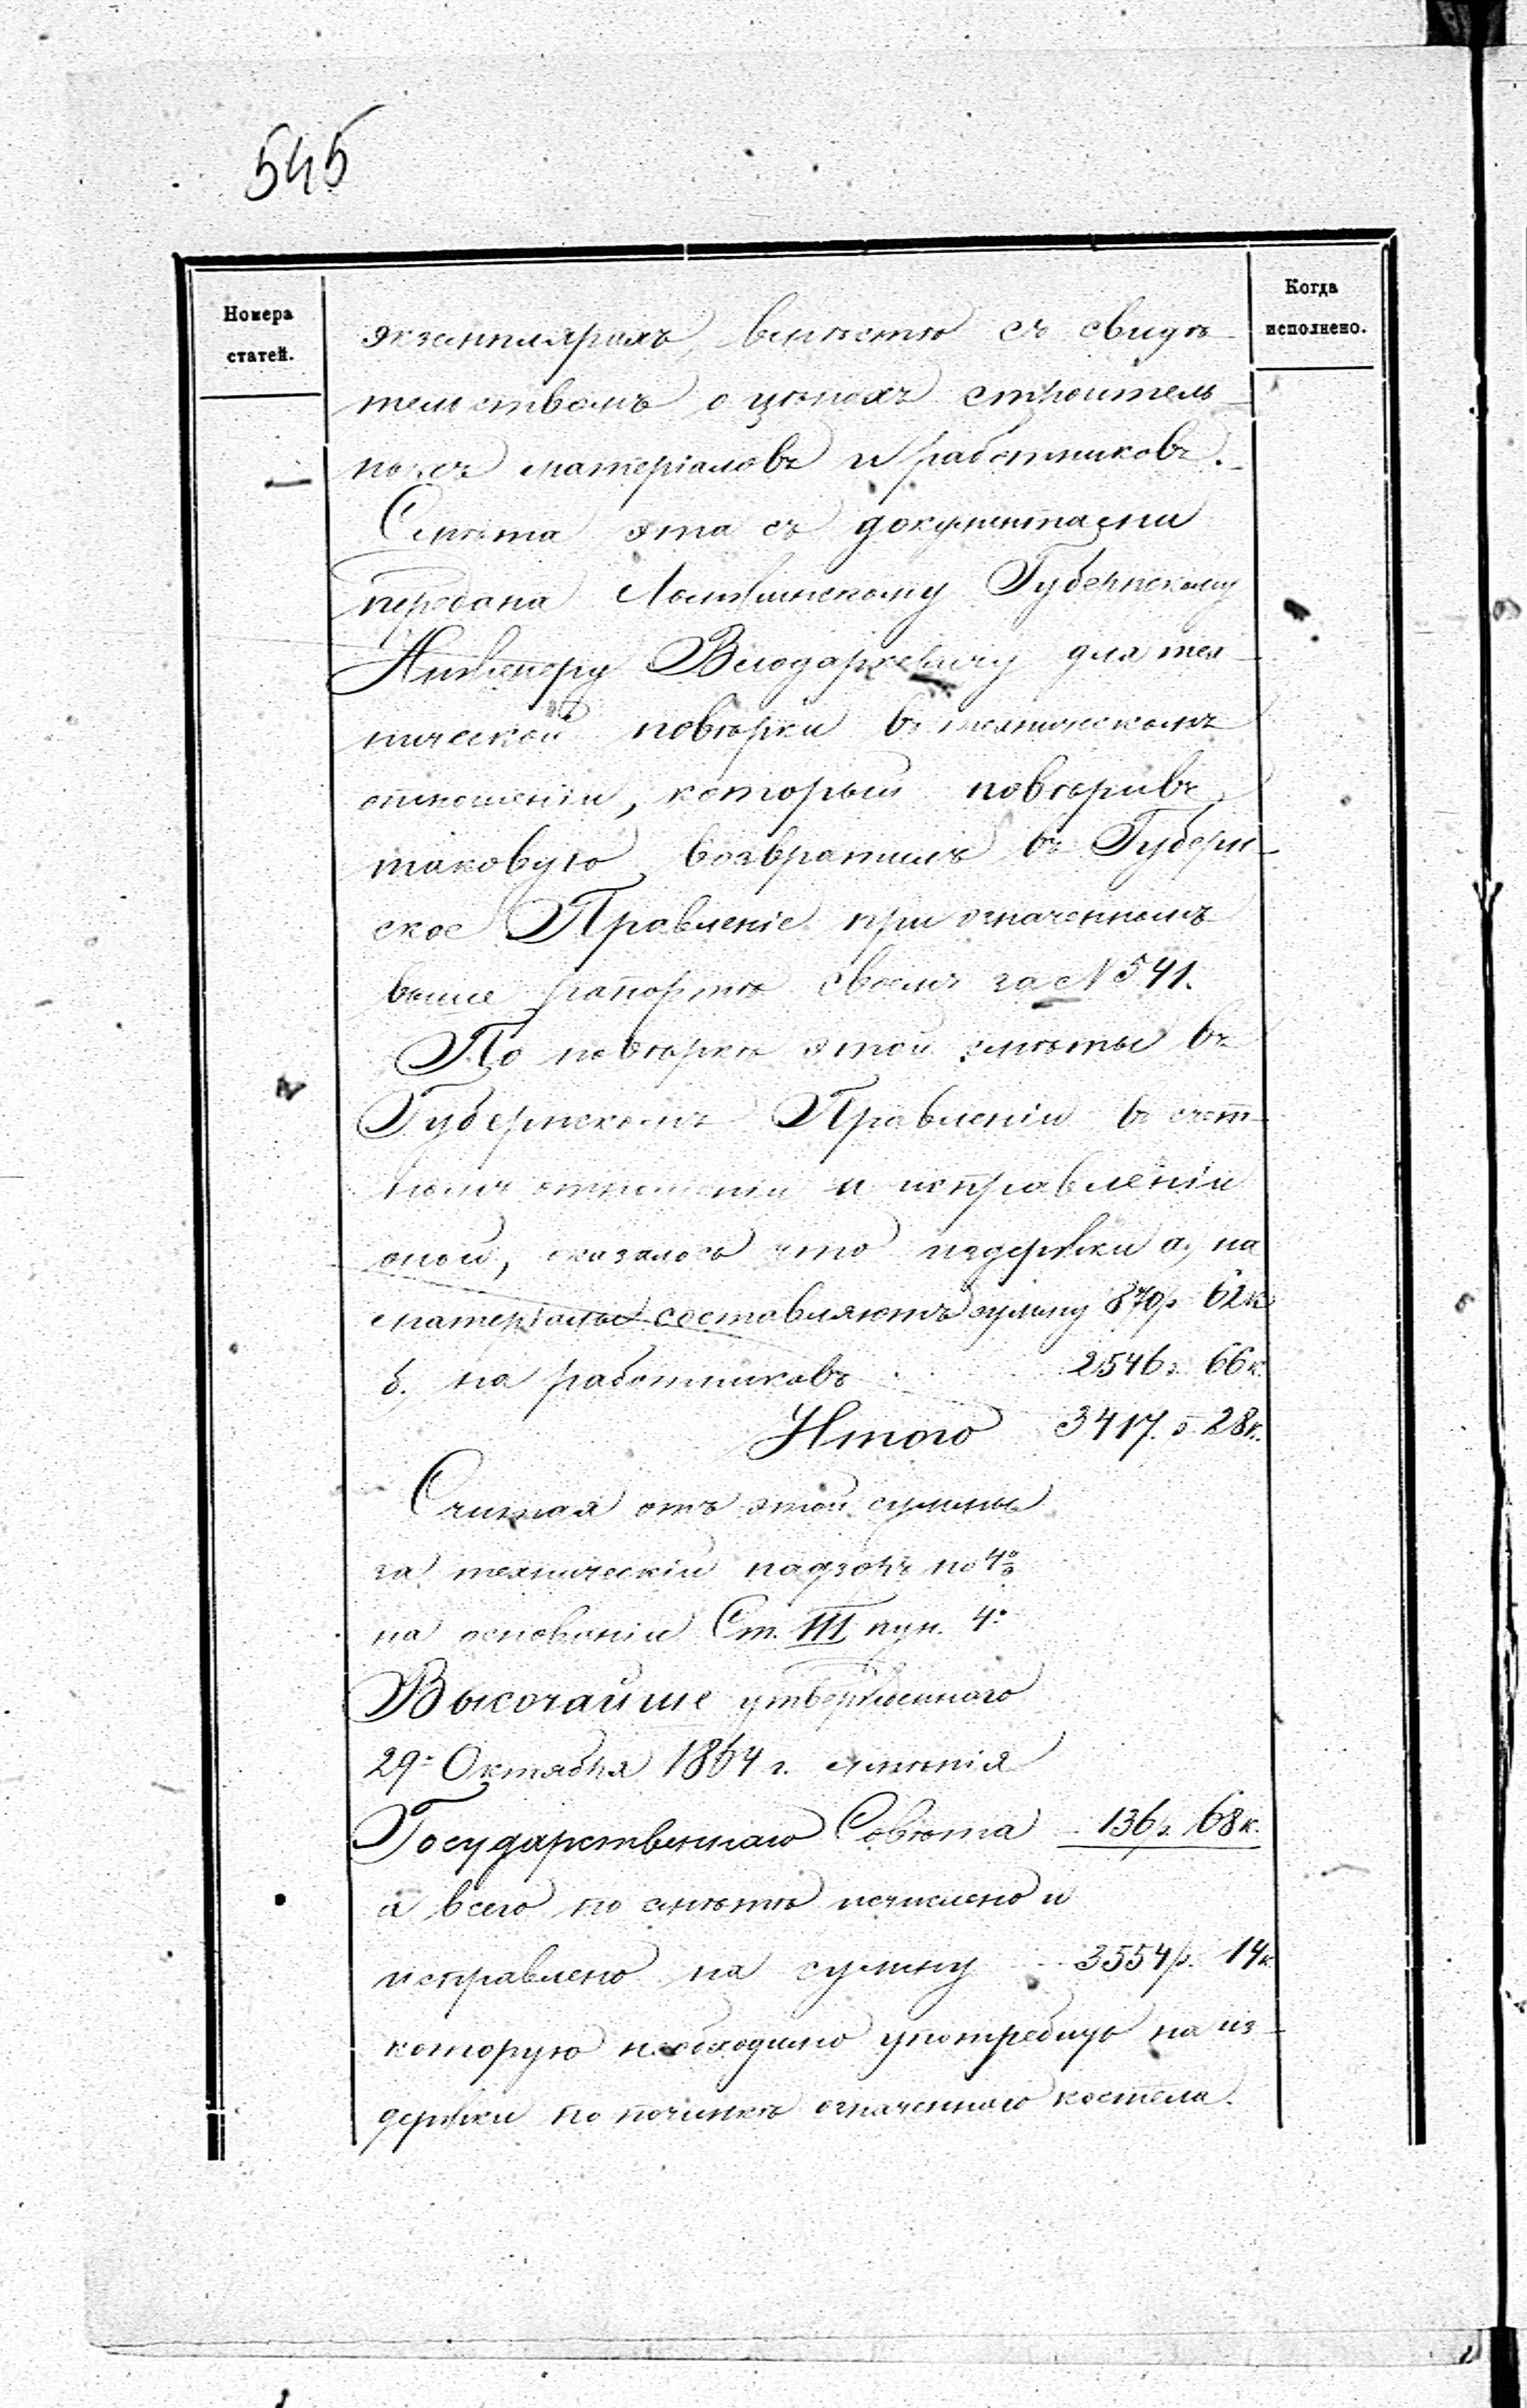 545
Номера
статей.
Когда
исполнено.
экземплярахъ, вмѣстѣ съ свидѣ-
тельствомъ о цѣнахъ строитель-
ныхъ матеріаловъ и работниковъ.
Смѣта эта съ документами
передана Ломжинскому Губернскому
Инженеру Влодаркевичу для тех-
нической повѣрки въ техническомъ
отношеніи, который повѣривъ
таковую возвратилъ въ Губерн-
ское Правленіе при означенномъ
выше рапортѣ своемъ за № 541.
По повѣркѣ этой смѣты въ
Губернскомъ Правленіи въ счет-
номъ отношеніи и исправленіи
оной, оказалось что издержки а, на
матеріалы составляютъ сумму 870 р. 62 к.
б, на работниковъ . . 2546 р. 66 к.
Итого 3417 р. 28 к.
Считая отъ этой суммы
за техническій надзоръ по 4%
на основаніи Ст. III пун. 4º
Высочайше утвержденнаго
29º Октября 1864 г. мнѣнія
Государственнаго Совѣта - 136 р. 68 к.
а всего по смѣтѣ исчислено и
исправлено на сумму - 3554 р. 14 к.
которую необходимо употребить на из-
держки по починкѣ означеннаго костела.